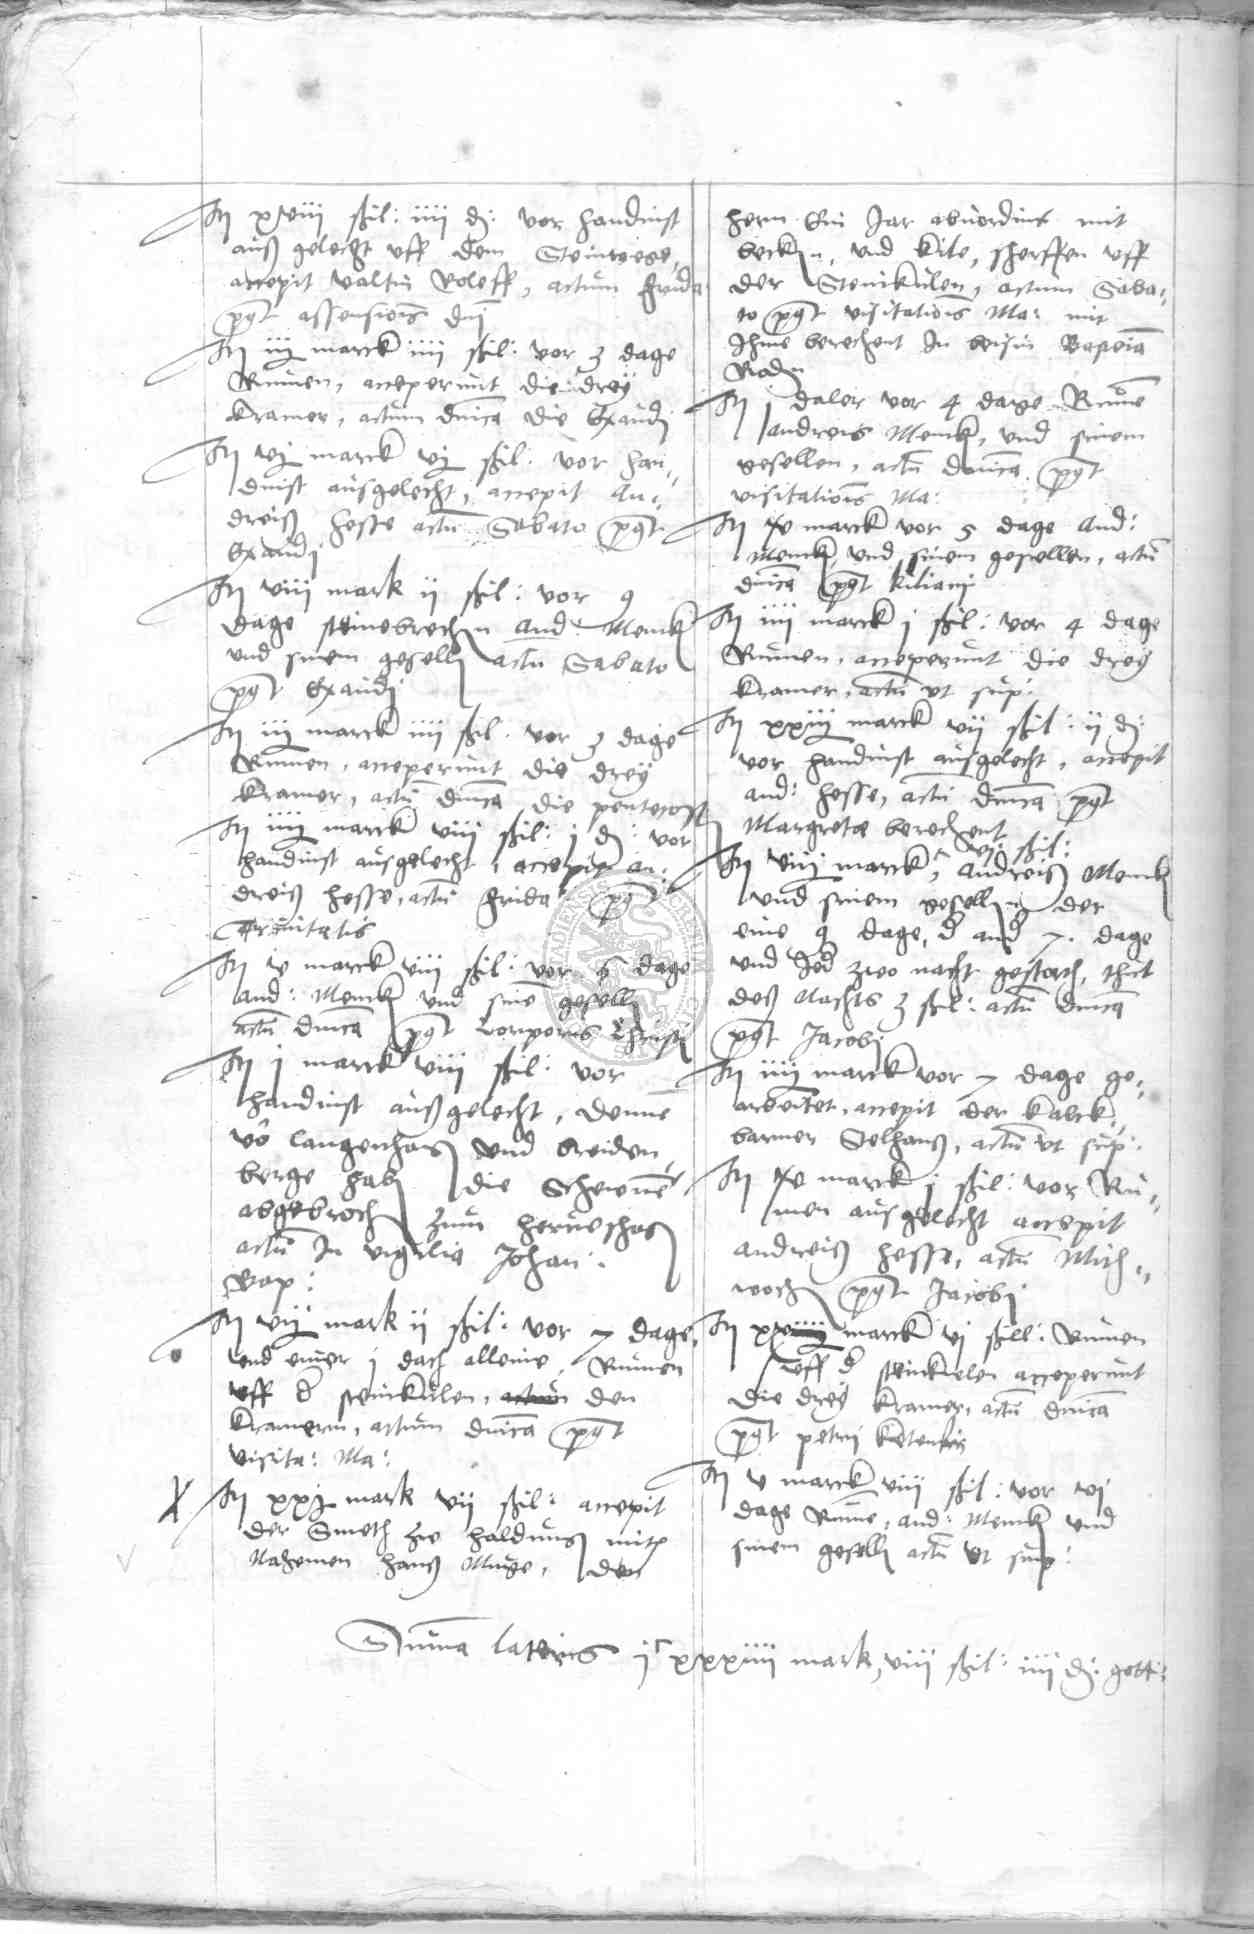 It xviii ßil: iiii d: vor handinst
auß gelecht vff dem Steinwege,
accepit valtin Roleff, actum frida
post assensionis dni
It iij marck iiii ßil: vor 3 dage
Rumen, acceperunt die drey
Kramer, actum dnica die Exaudi
It vj marck vj ßil: vor han,,
dinst ausgelecht, accepit An:
dreiß hesse actu Sabato post
Exaudi
It viii mark ii ßil: vor 9
dage steinebrechen And: Menck
vnd sinem gesell actu Sabato
post Exaudi
It iij marck iiii ßil: vor 3 dage
Rumen, acceperunt die drey
Kramer, actu dnica die pentecost
It iiij marck viii ßil: j d: vor
handinst ausgelecht, accepit An:
dreiß hesse, actu frida post
Trinitatis
It v marck viii ßil: vor 6 dage
And: Menck vnd sine gesell
actu dnica post Corporis Christi
It j marck viii ßil: vor
handinst außgelecht, denne
vo Langenhaß vnd breiden,,
berge hab die Schewne
abgebroch zum
actu In vigilia Johan:
Bap:
It vij mark ii ßil: vor 7 dage,
vnd einer j dach alleine Rumen
vff d steinkulen, den
Kramern, actum dnica post
visita: Ma:
It xxj mark vii ßil: accepit
der Smeth mit
Nahemen hanß den
herrn Ein Jar abuordint mit
becken, vnd kile, sherffen vff
der Steinkulen, actum Saba,,
to post visitationis Ma: mit
Ihme berechent In beisin
Roden
It j daler vor 4 dage Rume
Andreis Menck, vnd sinem
gesellen, actu dnica post
visitationis Ma:
It iv marck vor 5 dage And:
Menck, vnd sinem gesellen, actu
dnica post kiliani
It iiii marck j ßil: vor 4 dage
Rumen, acceperunt die drey
Kramer, actu vt sup:
It xxiij marck vii ßil: ii d:
vor handinst ausgelecht, accepit
And: hesse, actu dnica post
Margrete berechent
vj ßil:
It viij marck, Andreiß Menck
vnd sinem gesellen der
eine 9 dage, d and 7. dage
vnd Jed zwo nacht gestoch, thut
deß Nachts 3 ßil: actu dnica
post Jacobi
It iiij marck vor 7 dage ge,,
arbeitet, accepit der kalck,,
barner Selhanß, actu vt sup:
It iv marck j ßil: vor Ru,,
men ausgelecht accepit
Andreiß hesse, actu Mith,,
woch post Jacobi
It marck vj ßill: Rumen
vff d steinkulen acceperunt
die drey Kramer, actu dnica
post petri
It v marck viii ßil: vor vj
dage Rume, And: Menck vnd
sinem gesell actu vt sup:
Suma lateris jc xxxiiii mark, viii ßil: iiii d: gott: